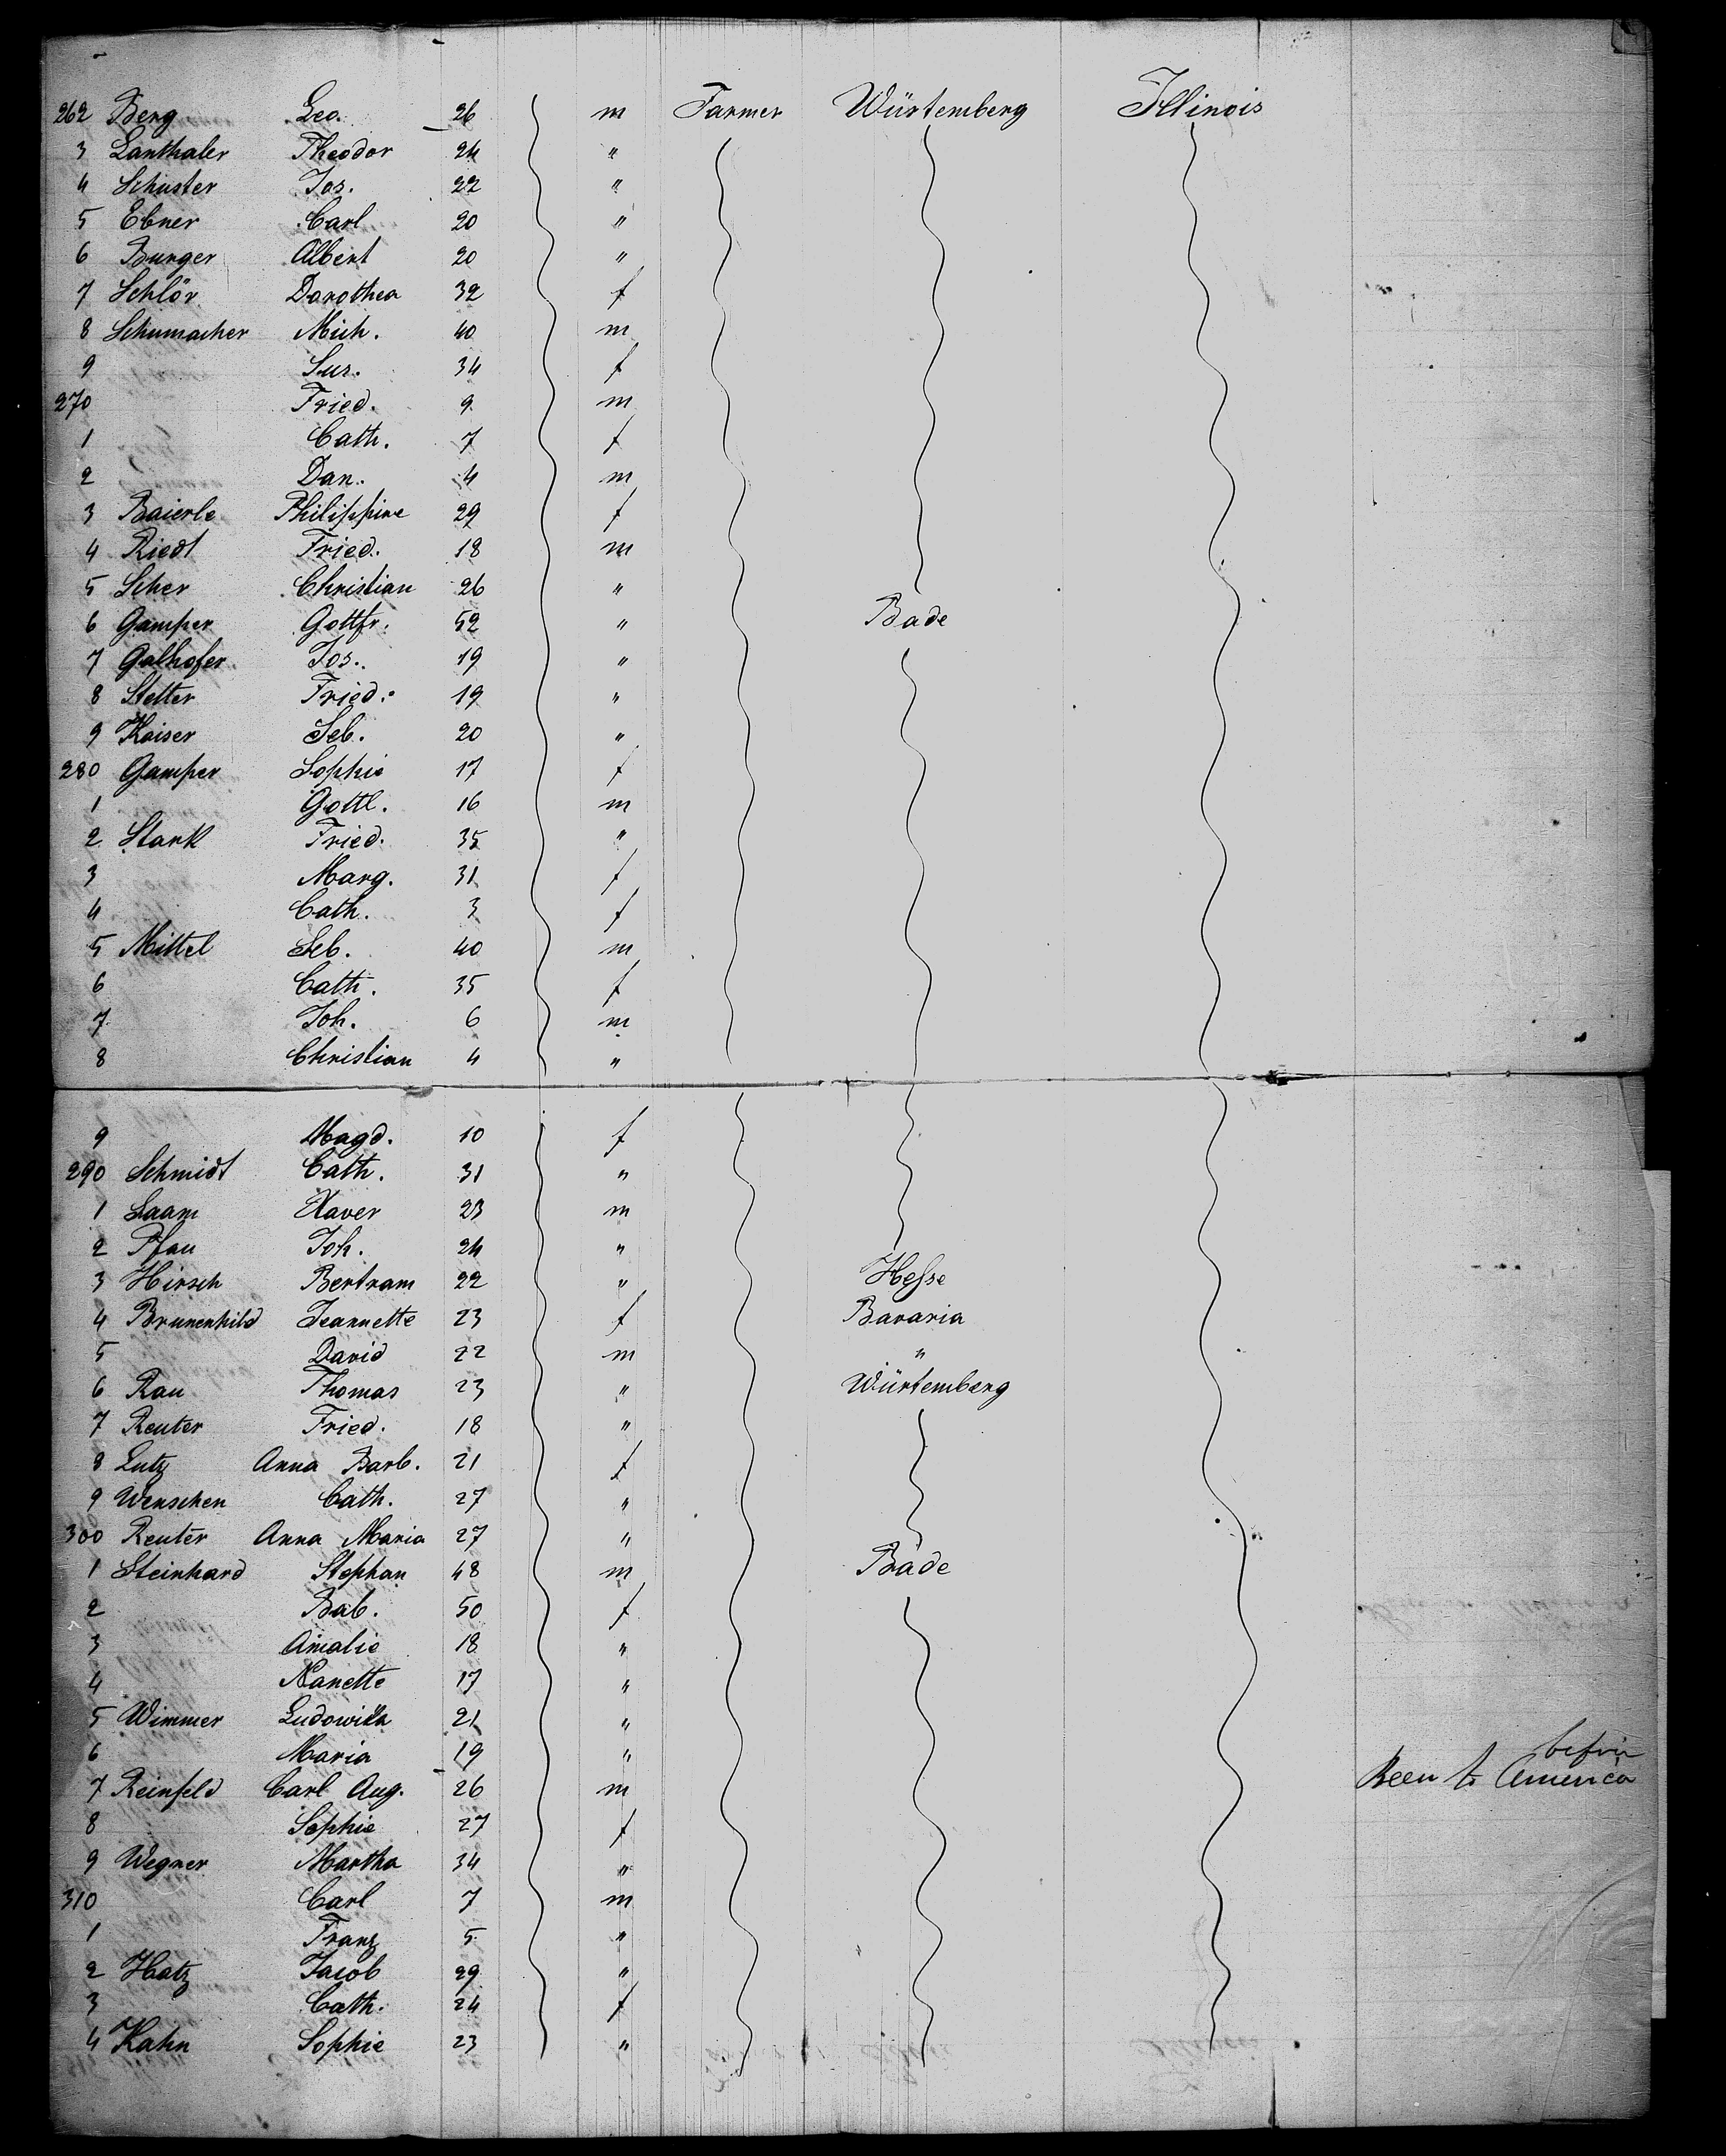 262 Berg Leo. 26 m Farmer Würtemberg Illinois
3 Lanthaler Theodor 24 "
4 Schuster Jos. 22 "
5 Ebner Carl 20 "
6 Burger Albert 20 "
7 Schlör Dorothea 32 f
8 Schumacher Mich. 40 m
9 Sus. 34 f
270 Fried. 9 m
1 Cath. 7 f
2 Dan. 4 m
3 Baierle Philippine 29 f
4 Riedt Fried. 18 m
5 Scher Christian 26 "
6 Gamper Gottfr. 52 " Bade
7 Galhofer Jos. 19 "
8 Stetter Fried. 19 "
9 Kaiser Seb. 20 "
280 Gamper Sophie 17 f
1 Gottl. 16 m
2 Stark Fried. 35 "
3 Marg. 31 f
4 Cath. 3 f
5 Mittel Seb. 40 m
6 Cath. 35 f
7 Joh. 6 m
8 Christian 4 "
9 Magd. 10 f
290 Schmidt Cath. 31 "
1 Laam Xaver 23 m
2 Pfau Joh. 24 "
3 Hirsch Bertram 22 " Hesse
4 Brunenhild Jeannette 23 f Bavaria
5 David 22 m "
6 Rau Thomas 23 " Würtemberg
7 Reuter Fried. 18 "
8 Lutz Anna Barb. 21 f
9 Wenschen Cath. 27 "
300 Reuter Anna Maria 27 "
1 Steinhard Stephan 48 m Bade
2 Bab. 50 f
3 Amalie 18 "
4 Nanette 17 "
5 Wimmer Ludowika 21 "
6 Maria 19 "
7 Reinfeld Carl Aug. 26 m Been to America before
8 Sophie 27 f
9 Wegner Martha 34 "
310 Carl 7 m
1 Franz 5 "
2 Hatz Jacob 29 "
3 Cath. 24 f
4 Kahn Sophie 23 "